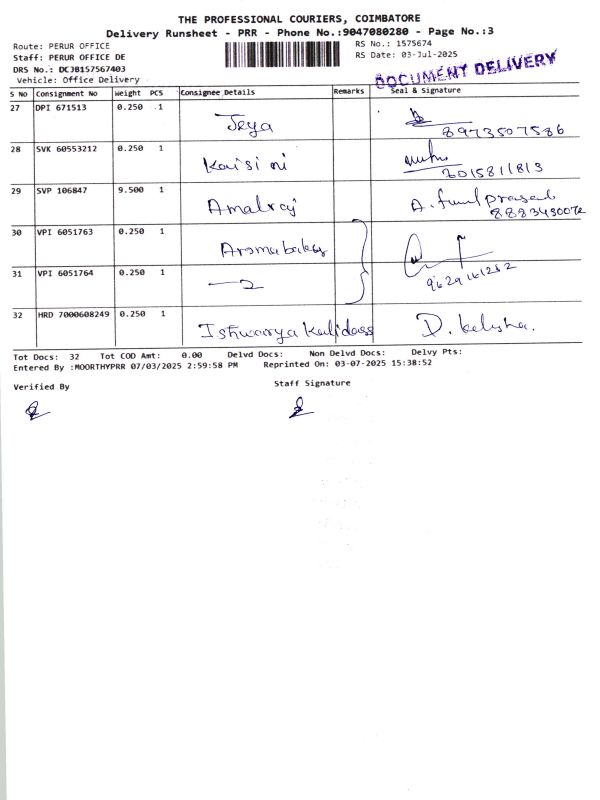 THE PROFESSIONAL COURIERS, COIMBATORE
Delivery Runsheet - PRR - Phone No.:9047080280 - Page No.:3
Route: PERUR OFFICE RS No.: 1575674
Staff: PERUR OFFICE DE RS Date: 03-Jul-2025
DRS No.: DCJB157567403
Vehicle: Office Delivery
DOCUMENT DELIVERY
S No Consignment No Weight PCS Consignee Details Remarks Seal & Signature
27 DPI 671513 0.250 1
Jeya 8973507586
28 SVK 60553212 0.250 1
Kaisi ni 7015811813
29 SVP 106847 9.500 1
Amalraj A.
30 VPI 6051763 0.250 1
Aroma bakes
31 VPI 6051764 0.250 1
9629161252
32 HRD 7000608249 0.250 1
Ishwarya Kalidass D.
Tot Docs: 32 Tot COD Amt: 0.00 Delvd Docs: Non Delvd Docs: Delvy Pts:
Entered By :MOORTHYPRR 07/03/2025 2:59:58 PM Reprinted On: 03-07-2025 15:38:52
Verified By Staff Signature